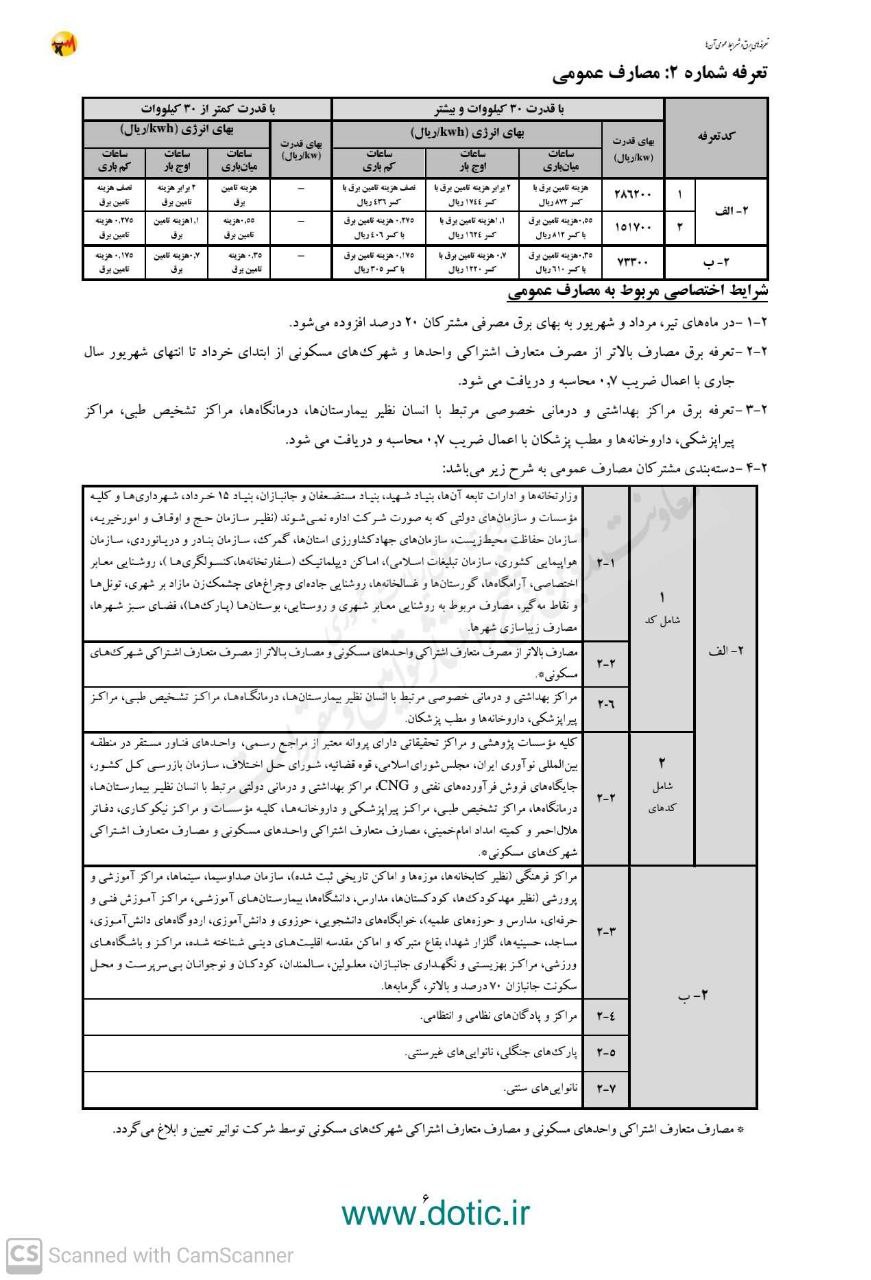 تعرفه‌های برق و شرایط عمومی آن‌ها
تعرفه شماره ۲: مصارف عمومی
کدتعرفه
با قدرت ۳۰ کیلووات و بیشتر
با قدرت کمتر از ۳۰ کیلووات
بهای قدرت (kw/ریال)
بهای انرژی (kwh/ریال)
بهای قدرت (kw/ریال)
بهای انرژی (kwh/ریال)
ساعات میان‌باری
ساعات اوج بار
ساعات کم باری
ساعات میان‌باری
ساعات اوج بار
ساعات کم باری
۲- الف
۱
۲۸۶۲۰۰
هزینه تامین برق با کسر ۸۷۲ ریال
۲ برابر هزینه تامین برق با کسر ۱۷٤٤ ریال
نصف هزینه تامین برق با کسر ٤۳٦ ریال
–
هزینه تامین برق
۲ برابر هزینه تامین برق
نصف هزینه تامین برق
۲
۱۵۱۷۰۰
۰,۵۵ هزینه تامین برق با کسر ۸۱۲ ریال
۱,۱هزینه تامین برق با کسر ۱٦۲٤ ریال
۰,۲۷۵ هزینه تامین برق با کسر ٤۰٦ ریال
–
۰,۵۵هزینه تامین برق
۱,۱هزینه تامین برق
۰,۲۷۵ هزینه تامین برق
۲- ب
۷۳۳۰۰
۰,۳۵هزینه تامین برق با کسر ٦۱۰ ریال
۰,۷ هزینه تامین برق با کسر ۱۲۲۰ ریال
۰,۱۷۵ هزینه تامین برق با کسر ۳۰۵ ریال
–
۰,۳۵ هزینه تامین برق
۰,۷هزینه تامین برق
۰,۱۷۵ هزینه تامین برق
شرایط اختصاصی مربوط به مصارف عمومی
۲-۱-در ماه‌های تیر، مرداد و شهریور به بهای برق مصرفی مشترکان ۲۰ درصد افزوده می‌شود.
۲-۲-تعرفه برق مصارف بالاتر از مصرف متعارف اشتراکی واحدها و شهرک‌های مسکونی از ابتدای خرداد تا انتهای شهریور سال
جاری با اعمال ضریب ۰,۷ محاسبه و دریافت می شود.
۲-۳-تعرفه برق مراکز بهداشتی و درمانی خصوصی مرتبط با انسان نظیر بیمارستان‌ها، درمانگاه‌ها، مراکز تشخیص طبی، مراکز
پیراپزشکی، داروخانه‌ها و مطب پزشکان با اعمال ضریب ۰,۷ محاسبه و دریافت می شود.
۲-۴-دسته‌بندی مشترکان مصارف عمومی به شرح زیر می‌باشد:
۲- الف
۱
شامل کد
۲-۱
وزارتخانه‌ها و ادارات تابعه آن‌ها، بنیاد شهید، بنیاد مستضعفان و جانبازان، بنیاد ۱۵ خرداد، شهرداری‌ها و کلیه
مؤسسات و سازمان‌های دولتی که به صورت شرکت اداره نمی‌شوند (نظیر سازمان حج و اوقاف و امورخیریه،
سازمان حفاظت محیط‌زیست، سازمان‌های جهادکشاورزی استان‌ها، گمرک، سازمان بنادر و دریانوردی، سازمان
هواپیمایی کشوری، سازمان تبلیغات اسلامی)، اماکن دیپلماتیک (سفارتخانه‌ها،کنسولگری‌ها )، روشنایی معابر
اختصاصی، آرامگاه‌ها، گورستان‌ها و غسالخانه‌ها، روشنایی جاده‌ای وچراغ‌های چشمک‌زن مازاد بر شهری، تونل‌ها
و نقاط مه‌گیر، مصارف مربوط به روشنایی معابر شهری و روستایی، بوستان‌ها (پارک‌ها)، فضای سبز شهرها،
مصارف زیباسازی شهرها.
۲-۲
مصارف بالاتر از مصرف متعارف اشتراکی واحدهای مسکونی و مصارف بالاتر از مصرف متعارف اشتراکی شهرک‌های
مسکونی*.
۲-٦
مراکز بهداشتی و درمانی خصوصی مرتبط با انسان نظیر بیمارستان‌ها، درمانگاه‌ها، مراکز تشخیص طبی، مراکز
پیراپزشکی، داروخانه‌ها و مطب پزشکان.
۲
شامل
کدهای
۲-۲
کلیه مؤسسات پژوهشی و مراکز تحقیقاتی دارای پروانه معتبر از مراجع رسمی، واحدهای فناور مستقر در منطقه
بین‌المللی نوآوری ایران، مجلس‌شورای‌اسلامی، قوه قضائیه، شورای حل اختلاف، سازمان بازرسی کل کشور،
جایگاه‌های فروش فرآورده‌های نفتی و CNG، مراکز بهداشتی و درمانی دولتی مرتبط با انسان نظیر بیمارستان‌ها،
درمانگاه‌ها، مراکز تشخیص طبی، مراکز پیراپزشکی و داروخانه‌ها، کلیه مؤسسات و مراکز نیکوکاری، دفاتر
هلال‌احمر و کمیته امداد امام‌خمینی، مصارف متعارف اشتراکی واحدهای مسکونی و مصارف متعارف اشتراکی
شهرک‌های مسکونی*.
۲- ب
۲-۳
مراکز فرهنگی (نظیر کتابخانه‌ها، موزه‌ها و اماکن تاریخی ثبت شده)، سازمان صداوسیما، سینماها، مراکز آموزشی و
پرورشی (نظیر مهدکودک‌ها، کودکستان‌ها، مدارس، دانشگاه‌ها، بیمارستان‌های آموزشی، مراکز آموزش فنی و
حرفه‌ای، مدارس و حوزه‌های علمیه)، خوابگاه‌های دانشجویی، حوزوی و دانش‌آموزی، اردوگاه‌های دانش‌آموزی،
مساجد، حسینیه‌ها، گلزار شهدا، بقاع متبرکه و اماکن مقدسه اقلیت‌های دینی شناخته شده، مراکز و باشگاه‌های
ورزشی، مراکز بهزیستی و نگهداری جانبازان، معلولین، سالمندان، کودکان و نوجوانان بی‌سرپرست و محل
سکونت جانبازان ۷۰ درصد و بالاتر، گرمابه‌ها.
۲-٤
مراکز و پادگان‌های نظامی و انتظامی.
۲-۵
پارک‌های جنگلی، نانوایی‌های غیرسنتی.
۲-۷
نانوایی‌های سنتی.
* مصارف متعارف اشتراکی واحدهای مسکونی و مصارف متعارف اشتراکی شهرک‌های مسکونی توسط شرکت توانیر تعیین و ابلاغ می‌گردد.
۶
www.dotic.ir
CS Scanned with CamScanner